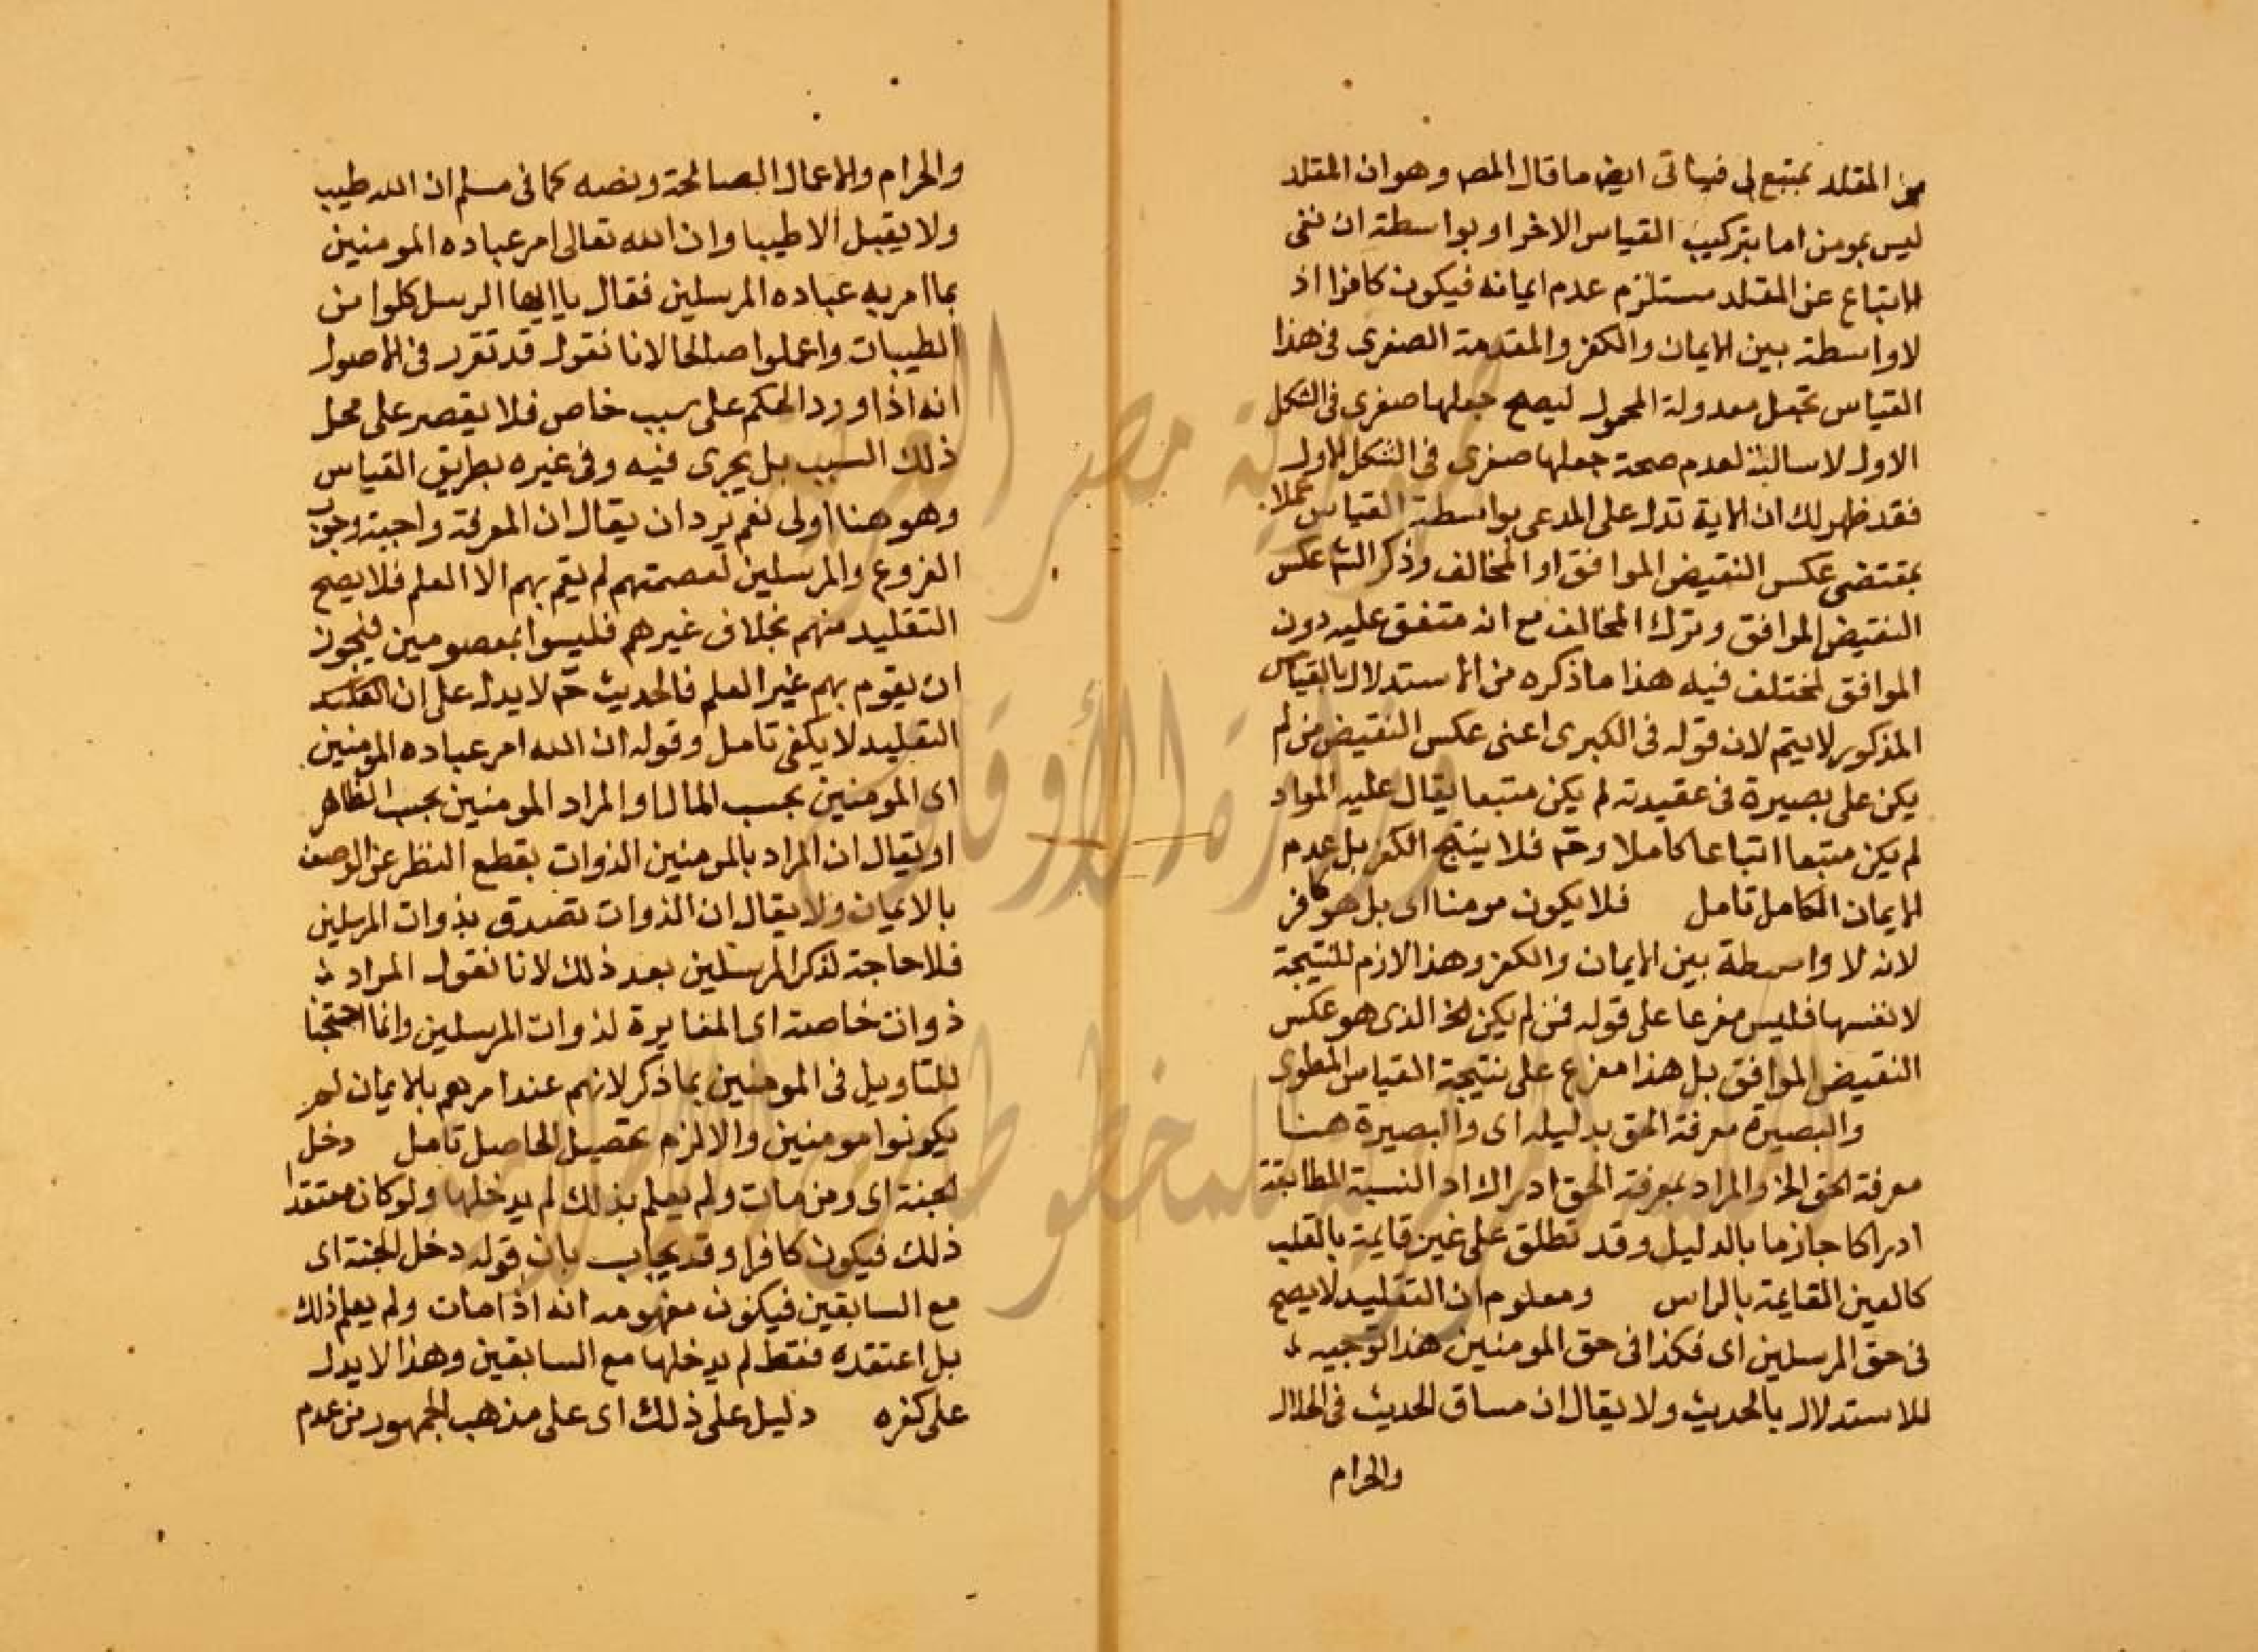 من المقلد بمتبع لى فيناتى ايض ما قال المص وهو ان المقلد
ليس بمومن اما بتركيب القياس الاخر او بواسطة ان نفى
الاتباع عن المقلد مستلزم عدم ايمانه فيكون كافرا اذ
لا واسطة بين الايمان والكفر والمقدمة الصغرى فى هذا
القياس تجعل معدولة المحمول ليصح جعلها صغرى فى الشكل
الاول لا سالبة لعدم صحة جعلها صغرى فى الشكل الاول
فقد ظهر لك ان الاية تدل على المدعى بواسطة القياس عملا
بمقتضى عكس النقيض الموافق او المخالف وذكر الشم عكس
النقيض الموافق وترك المخالف مع انه متفق عليه دون
الموافق لمختلف فيه هذا ما ذكره من الاستدلال بالقياس
المذكور لا يتم لان قوله فى الكبرى اعنى عكس النقيض من لم
يكن على بصيرة فى عقيدته لم يكن متبعا يقال عليه المراد
لم يكن متبعا اتباعا كاملا وحّ فلا ينتج الكفر بل عدم
الايمان الكامل تامل فلا يكون مومنا اى بل هو كافر
لانه لا واسطة بين الايمان والكفر وهذا لازم للنتيجة
لا نفسها فليس مفرعا على قوله فمن لم يكن الخ الذى هو عكس
النقيض الموافق بل هذا مفرع على نتيجة القياس المطوى
والبصيرة معرفة الحق بدليله اى والبصيرة هنا
معرفة الحق الخ والمراد بمعرفة الحق ادراك النسبة المطابقة
ادراكا جازما بالدليل وقد تطلق على عين قايمة بالقلب
كالعين القايمة بالراس ومعلوم ان التقليد لا يصح
فى حق المرسلين اى فكذا فى حق المومنين هذا توجيه
للاستدلال بالحديث ولا يقال ان مساق الحديث فى الحلال
والحرام
والحرام والاعمال الصالحة ونصه كما فى مسلم ان الله طيب
ولا يقبل الا طيبا وان الله تعالى امر عباده المومنين
بما امر به عباده المرسلين فقال يا ايها الرسل كلوا من
الطيبات واعملوا صالحا لانا نقول قد تقرر فى الاصول
انه اذا ورد الحكم على سبب خاص فلا يقصر على محل
ذلك السبب بل يجرى فيه وفى غيره بطريق القياس
وهو هنا اولى نعم يرد ان يقال ان المعرفة واجبة وجوب
الفروع والمرسلين لعصمتهم لم يقم بهم الا العلم فلا يصح
التقليد منهم بخلاف غيرهم فليسوا بمعصومين فيجوز
ان يقوم بهم غير العلم فالحديث حّ لا يدل على ان
التقليد لا يكفى تامل وقوله ان الله امر عباده المومنين
اى المومنين بحسب المال او المراد المومنين بحسب الظاهر
او يقال ان المراد بالمومنين الذوات بقطع النظر عن الوصف
بالايمان ولا يقال ان الذوات تصدق بذوات المرسلين
فلا حاجة لذكر المرسلين بعد ذلك لانا نقول المراد
ذوات خاصة اى المغايرة لذوات المرسلين وانما احتجنا
للتاويل فى المومنين بما ذكر لانهم عند امرهم بالايمان لم
يكونوا مومنين والا لزم تحصيل الحاصل تامل دخل
الجنة اى ومن مات ولم يعلم بذلك لم يدخلها ولو كان معتقدا
ذلك فيكون كافرا وقد يجاب بان قوله دخل الجنة اى
مع السابقين فيكون مفهومه انه اذا مات ولم يعلم ذلك
بل اعتقده فقط لم يدخلها مع السابقين وهذا لا يدل
على كفره دليل على ذلك اى على مذهب الجمهور من عدم